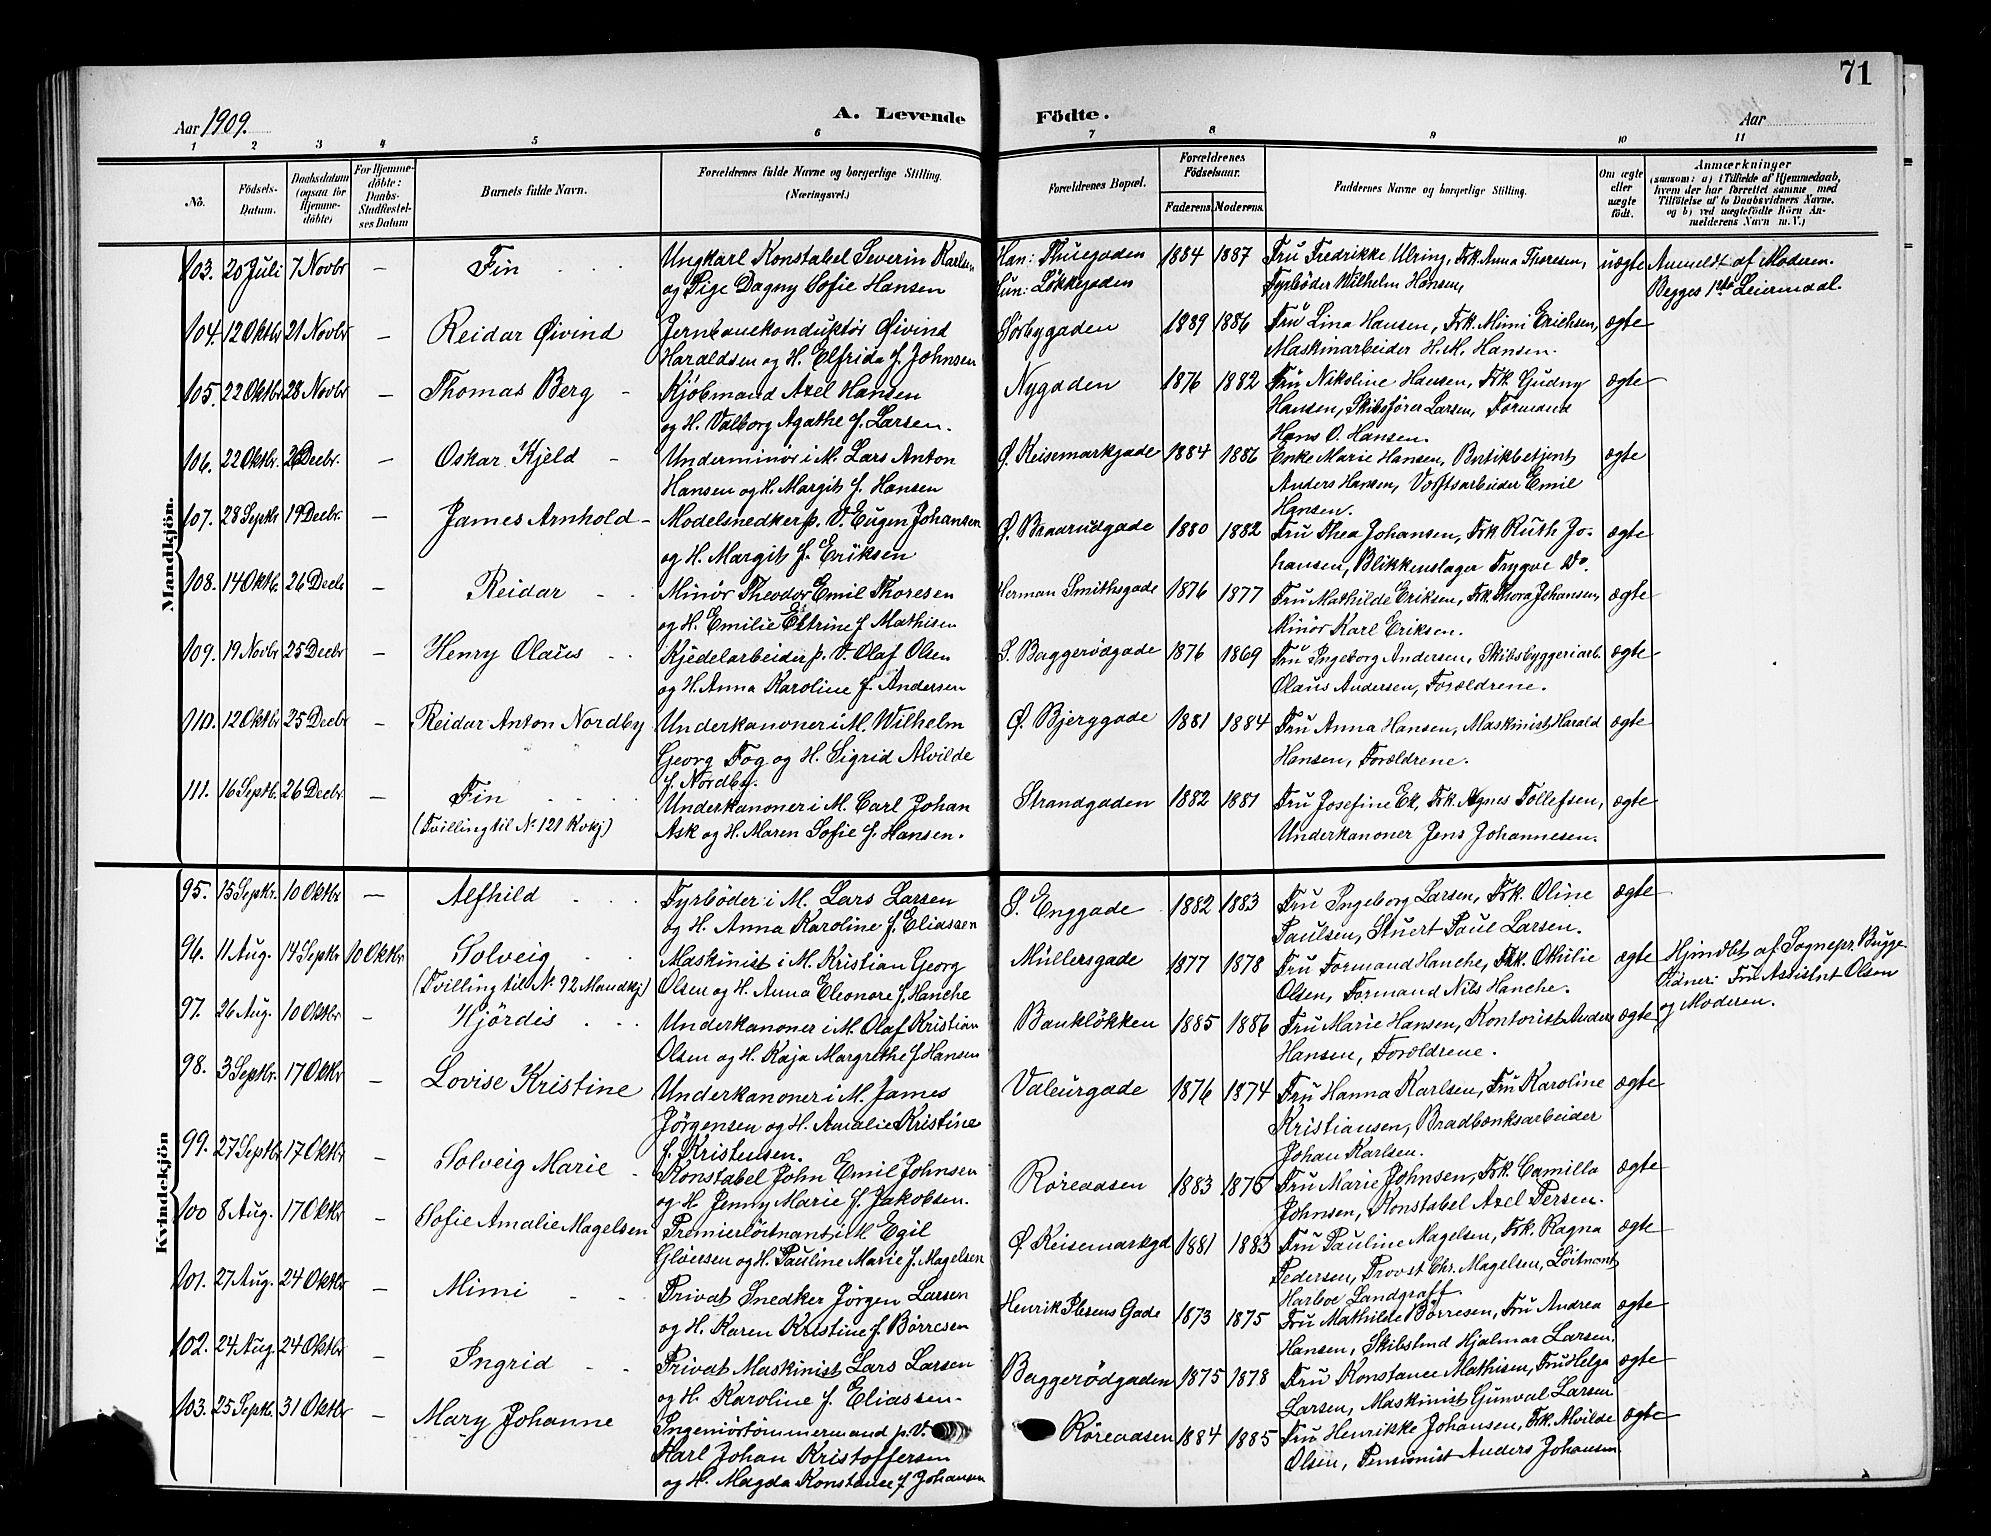 71
Aar 1909.
A. Levende Födte.
Aar
1 2 3 4 5 6 7 8 9 10 11
No.
Födsels-Datum.
Daabsdatum (ogsaa for Hjemme-döbte)
For Hjemme-döbte: Daabs-Stadfæstel-ses Datum
Barnets fulde Navn.
Forældrenes fulde Navne og borgerlige Stilling. (Næringsvei.)
Forældrenes Bopæl.
Forældrenes Födselsaar. Faderens. Moderens.
Faddernes Navne og borgerlige Stilling.
Om ægte eller uægte födt.
Anmærkninger (saasom: a) i Tilfælde af Hjemmedaab, hvem der har forrettet samme med Tilföielse af to Daabsvidners Navne, og b) ved uægtefödte Börn An-melderens Navn m. V.)
Mandkjön.
103. 20 Juli 7 Novbr — Fin Ungkarl Konstabel Severin Karlsen Han: Thuegaden 1884 1887 Fru Fredrikke Ulring, Frk. Anna Thoresen, uægte Anmeldt af Moderen.
og Pige Dagny Sofie Hansen Hun: Løkkegaden Fyrbøder Wilhelm Hansen, Begges 1ste Leiermaal.
104. 12 Oktbr 21 Novbr — Reidar Øivind Jernbanekonduktør Øivind Sørbygaden 1889 1886 Fru Lina Hansen, Frk. Mimi Erichsen, ægte
Haraldsen og H. Elfrida f. Johnsen Maskinarbeider H. M. Hansen.
105. 22 Oktbr 28 Novbr — Thomas Berg - Kjøbmand Axel Hansen Nygaden 1876 1882 Fru Nikoline Hansen, Frk. Gudny ægte
og H. Valborg Agathe f. Larsen. Hansen, Skibsfører Larsen, Formand
Hans O. Hansen.
106. 22 Oktbr. 26 Decbr. — Oskar Kjeld - Underminør i M. Lars Anton Ø. Keisemarkgade 1884 1886 Enke Marie Hansen, Butikbetjent ægte
Hansen og H. Margit f. Hansen Anders Hansen, Værftsarbeider Emil
Hansen.
107. 28 Septbr 19 Decbr. — James Arnhold - Modelsnedker p. V. Eugen Johansen Ø. Braarudgade 1880 1882 Fru Thea Johansen, Frk Ruth Jo- ægte
og H. Margit f. Eriksen hansen, Blikkenslager Trygve Do.
108. 14 Oktb. 26 Decb — Reidar Minør Theodor Emil Thoresen Herman Smithsgade 1876 1877 Fru Mathilde Eriksen, Frk. Thora Johansen, ægte
og H. Emilie Estrine f. Mathisen Minør Karl Eriksen.
109. 19 Novbr 25 Decbr — Henry Olaus Kjedelarbeider p. V. Olaf Olsen S. Baggerødgade 1876 1869 Fru Ingeborg Andersen, Skibsbyggeriarb. ægte
og H. Anna Karoline f. Andersen Olaus Andersen, Forældrene.
110. 12 Oktbr 25 Decbr — Reidar Anton Nordby Underkanoner i M. Wilhelm Ø. Bjerggade 1881 1884 Fru Anna Hansen, Maskinist Harald ægte
Georg Fog og H. Sigrid Alvilde Hansen, Forældrene.
f. Nordby.
111. 16 Septb. 26 Decbr. — Fin Underkanoner i M. Carl Johan Strandgaden 1882 1881 Fru Josefine Ek, Frk. Agnes Tollefsen, ægte
(Tvilling til No. 121 Kvkj) Ask og H. Maren Sofie f. Hansen. Underkanoner Jens Johannesen.
Kvindekjön
95. 15 Septbr. 10 Oktbr — Alfhild Fyrbøder i M. Lars Larsen S. Enggade 1882 1883 Fru Ingeborg Larsen, Frk. Oline ægte
og H. Anna Karoline f. Eliassen Paulsen, Stuert Paul Larsen.
96. 11 Aug. 14 Septbr 10 Oktbr. Solveig Maskinist i M. Kristian Georg Müllersgade 1877 1878 Fru Formand Hanche, Frk. Othilie ægte Hjmdbt af Sognepr. Bugge
(Tvilling til No. 92 Mandkj) Olsen og H. Anna Eleonore f. Hanche Olsen, Formand Nils Hanche. Vidner: Fru Assistnt Olsen
og Moderen.
97. 26 Aug. 10 Oktbr — Hjördis Underkanoner i M. Olaf Kristian Bankløkken 1885 1886 Fru Marie Hansen, Kontorist Anders ægte
Olsen og H. Kaja Margrethe f. Hansen Hansen, Forældrene.
98. 3 Septbr. 17 Oktbr — Lovise Kristine Underkanoner i M. James Valeurgade 1876 1874 Fru Hanna Karlsen, Fru Karoline ægte
Jørgensen og H. Amalie Kristine Kristiansen, Bradbænksarbeider
f. Kristensen. Johan Karlsen.
99. 27 Septbr 17 Oktbr — Solveig Marie - Konstabel John Emil Johnsen Röreaasen 1883 1875 Fru Marie Johnsen, Frk. Camilla ægte
og H. Jenny Marie f. Jakobsen. Johnsen, Konstabel Axel Persen.
100 8 Aug. 17 Oktbr — Sofie Amalie Magelsen Premierløitnant i M Egil Ø. Keisemarkgd 1881 1883 Fru Pauline Magelsen, Frk. Ragna ægte
Gløersen og H. Pauline Marie f. Magelsen Pedersen, Provst Chr. Magelsen, Løitnant
Harboe Landgraff.
101. 27 Aug. 24 Oktbr — Mimi Privat Snedker Jørgen Larsen Henrik Persens Gade 1873 1875 Fru Mathilde Børresen, Fru Andrea ægte
og H. Karen Kristine f. Børresen Hansen, Skibstmd Hjalmar Larsen.
102. 24 Aug. 24 Oktbr — Ingrid Privat Maskinist Lars Larsen Baggerødgaden 1875 1878 Fru Konstance Mathisen, Fru Helga ægte
og H. Karoline f. Eliassen. Larsen, Maskinist Gunval Larsen
103. 25 Septb. 31 Oktbr — Mary Johanne Ingeniørtømmermand p. V. Röreaasen 1884 1885 Fru Henrikke Johansen, Frk. Alvilde ægte
Karl Johan Kristoffersen Olsen, Pensionist Anders Johansen.
og H. Magda Konstance f. Johansen